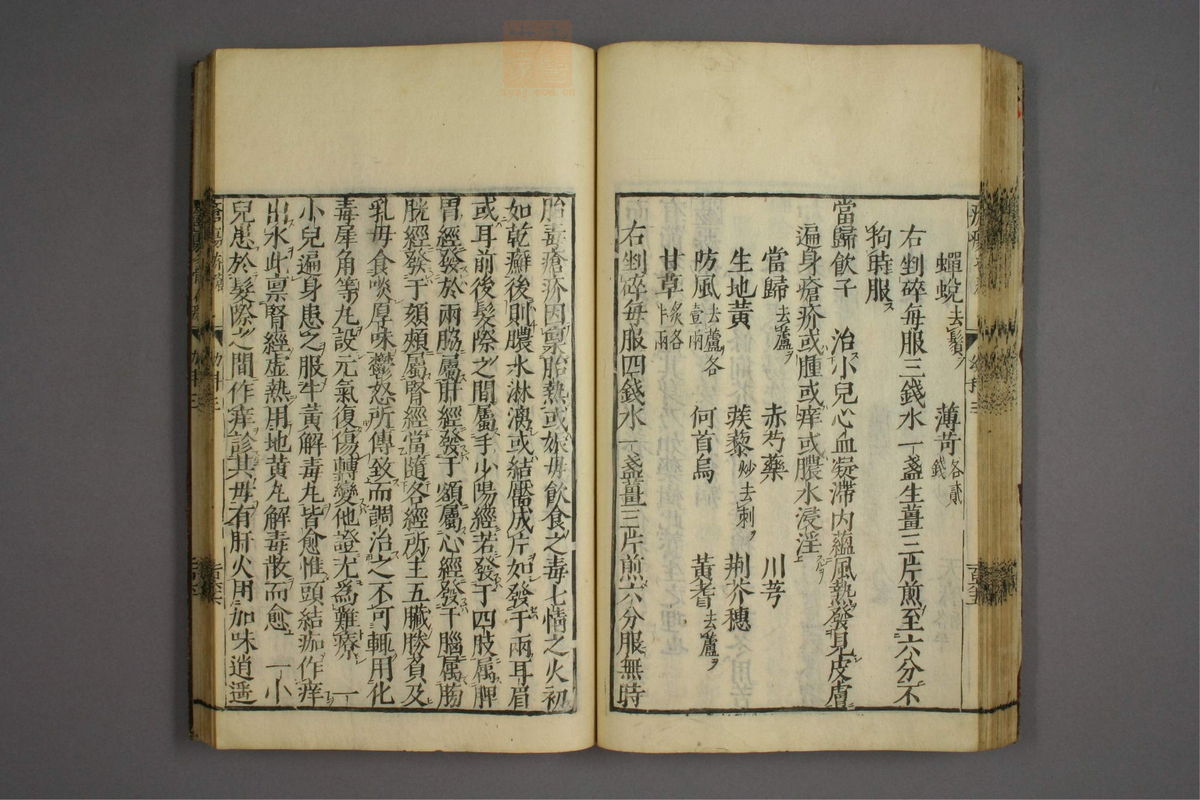 蟬蛻去鬚 薄苛各貳錢
右剉碎每服三錢水一盞生薑三片煎至六分不
狗時服
當歸飲子 治小兒心血凝滯内蘊風熱發見皮膚
遍身瘡疥或腫或痒或膿水浸淫
當歸去蘆 赤芍藥 川芎
生地黃 蒺藜炒去刺 荆芥穗
防風去蘆各壹兩 何首烏 黃耆去蘆
甘草炙各半兩
右剉碎每服四錢水一盞薑三片煎六分服無時
胎毒瘡疥因稟胎熱或娠母飲食之毒七情之火初
如乾癬後則膿水淋漓或結靨成片如發于兩耳眉
或耳前後髮際之間屬手少陽經若發于四肢属脾
胃經發於兩脇屬肝經發于額屬心經發于腦属膀
胱經發于頦頰屬腎經當隨各經所主五臟勝負及
乳母食啖厚味鬱怒所傳致而調治之不可輒用化
毒犀角等丸設元氣復傷轉變他證尤爲難療 一
小兒遍身患之服牛黃解毒丸皆愈惟頭結痂作痒
出水此禀腎經虛熱用地黄丸解毒散而愈 一小
兒患於髮際之間作痒診其母有肝火用加味逍遥